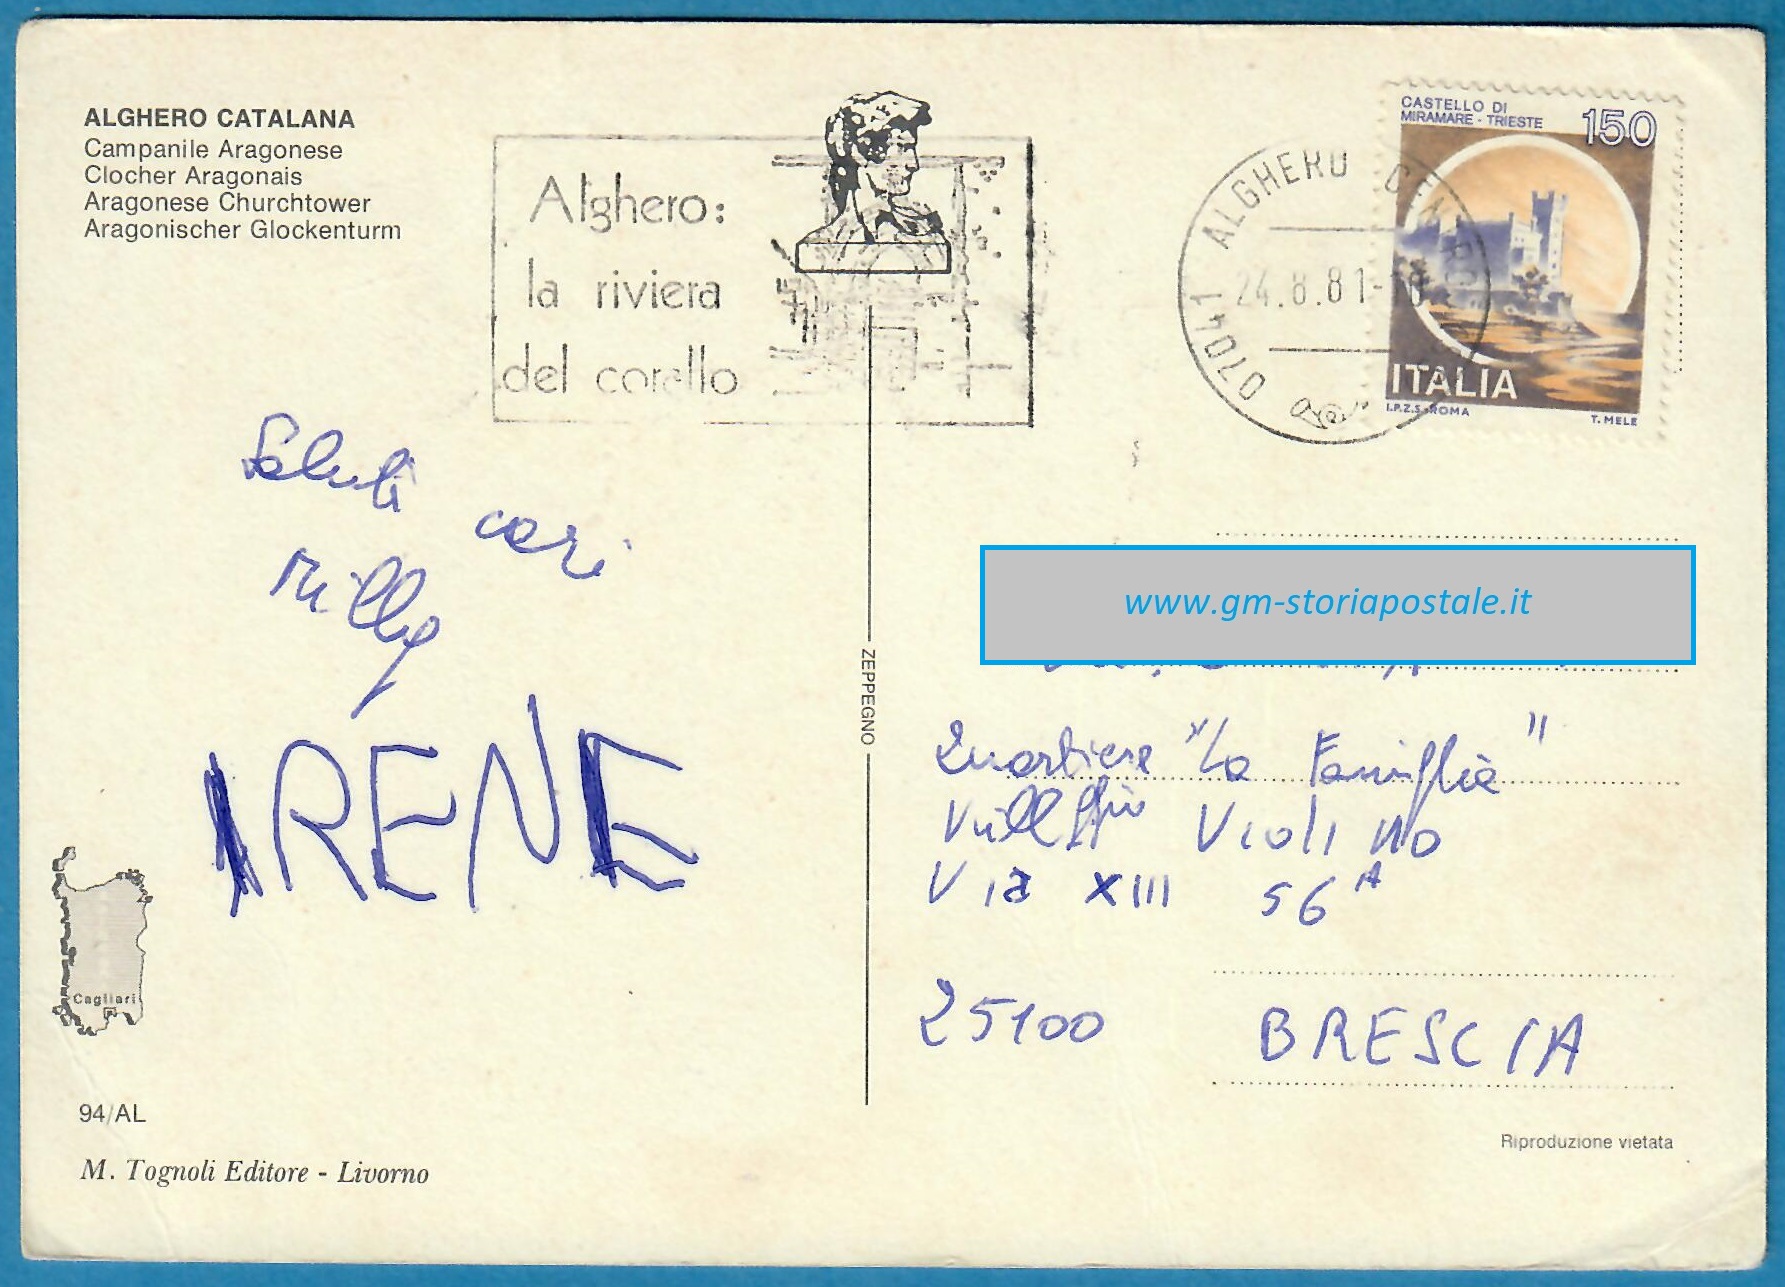 ALGHERO CATALANA
Campanile Aragonese
Clocher Aragonais
Aragonese Churchtower
Aragonischer Glockenturm
Alghero:
la riviera
del corallo
07041 ALGHERO CENTRO
24.8.81-18
CASTELLO DI
MIRAMARE - TRIESTE
150
ITALIA
I.P.Z.S. ROMA
T. MELE
Saluti cari
Milly
IRENE
Cagliari
94/AL
M. Tognoli Editore - Livorno
ZEPPEGNO
www.gm-storiapostale.it
Quartiere "La Famiglia"
Villggio Violino
Via XIII 56 A
25100 BRESCIA
Riproduzione vietata